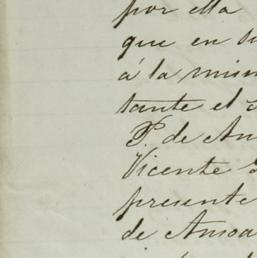 por ella
que en su
á la mism
tante el
P. de An
Vicente
presente
de Ansoa